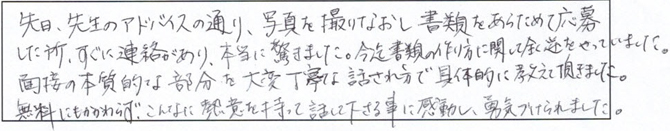 先日、先生のアドバイスの通り、写真を撮りなおし書類をあらためて応募
した所、すぐに連絡があり、本当に驚きました。今迄書類の作り方に関して全く逆をやっていました。
面接の本質的な部分を大変丁寧な話され方で具体的に教えて頂きました。
無料にもかかわらず、こんなに熱意を持って話して下さる事に感動し、勇気づけられました。